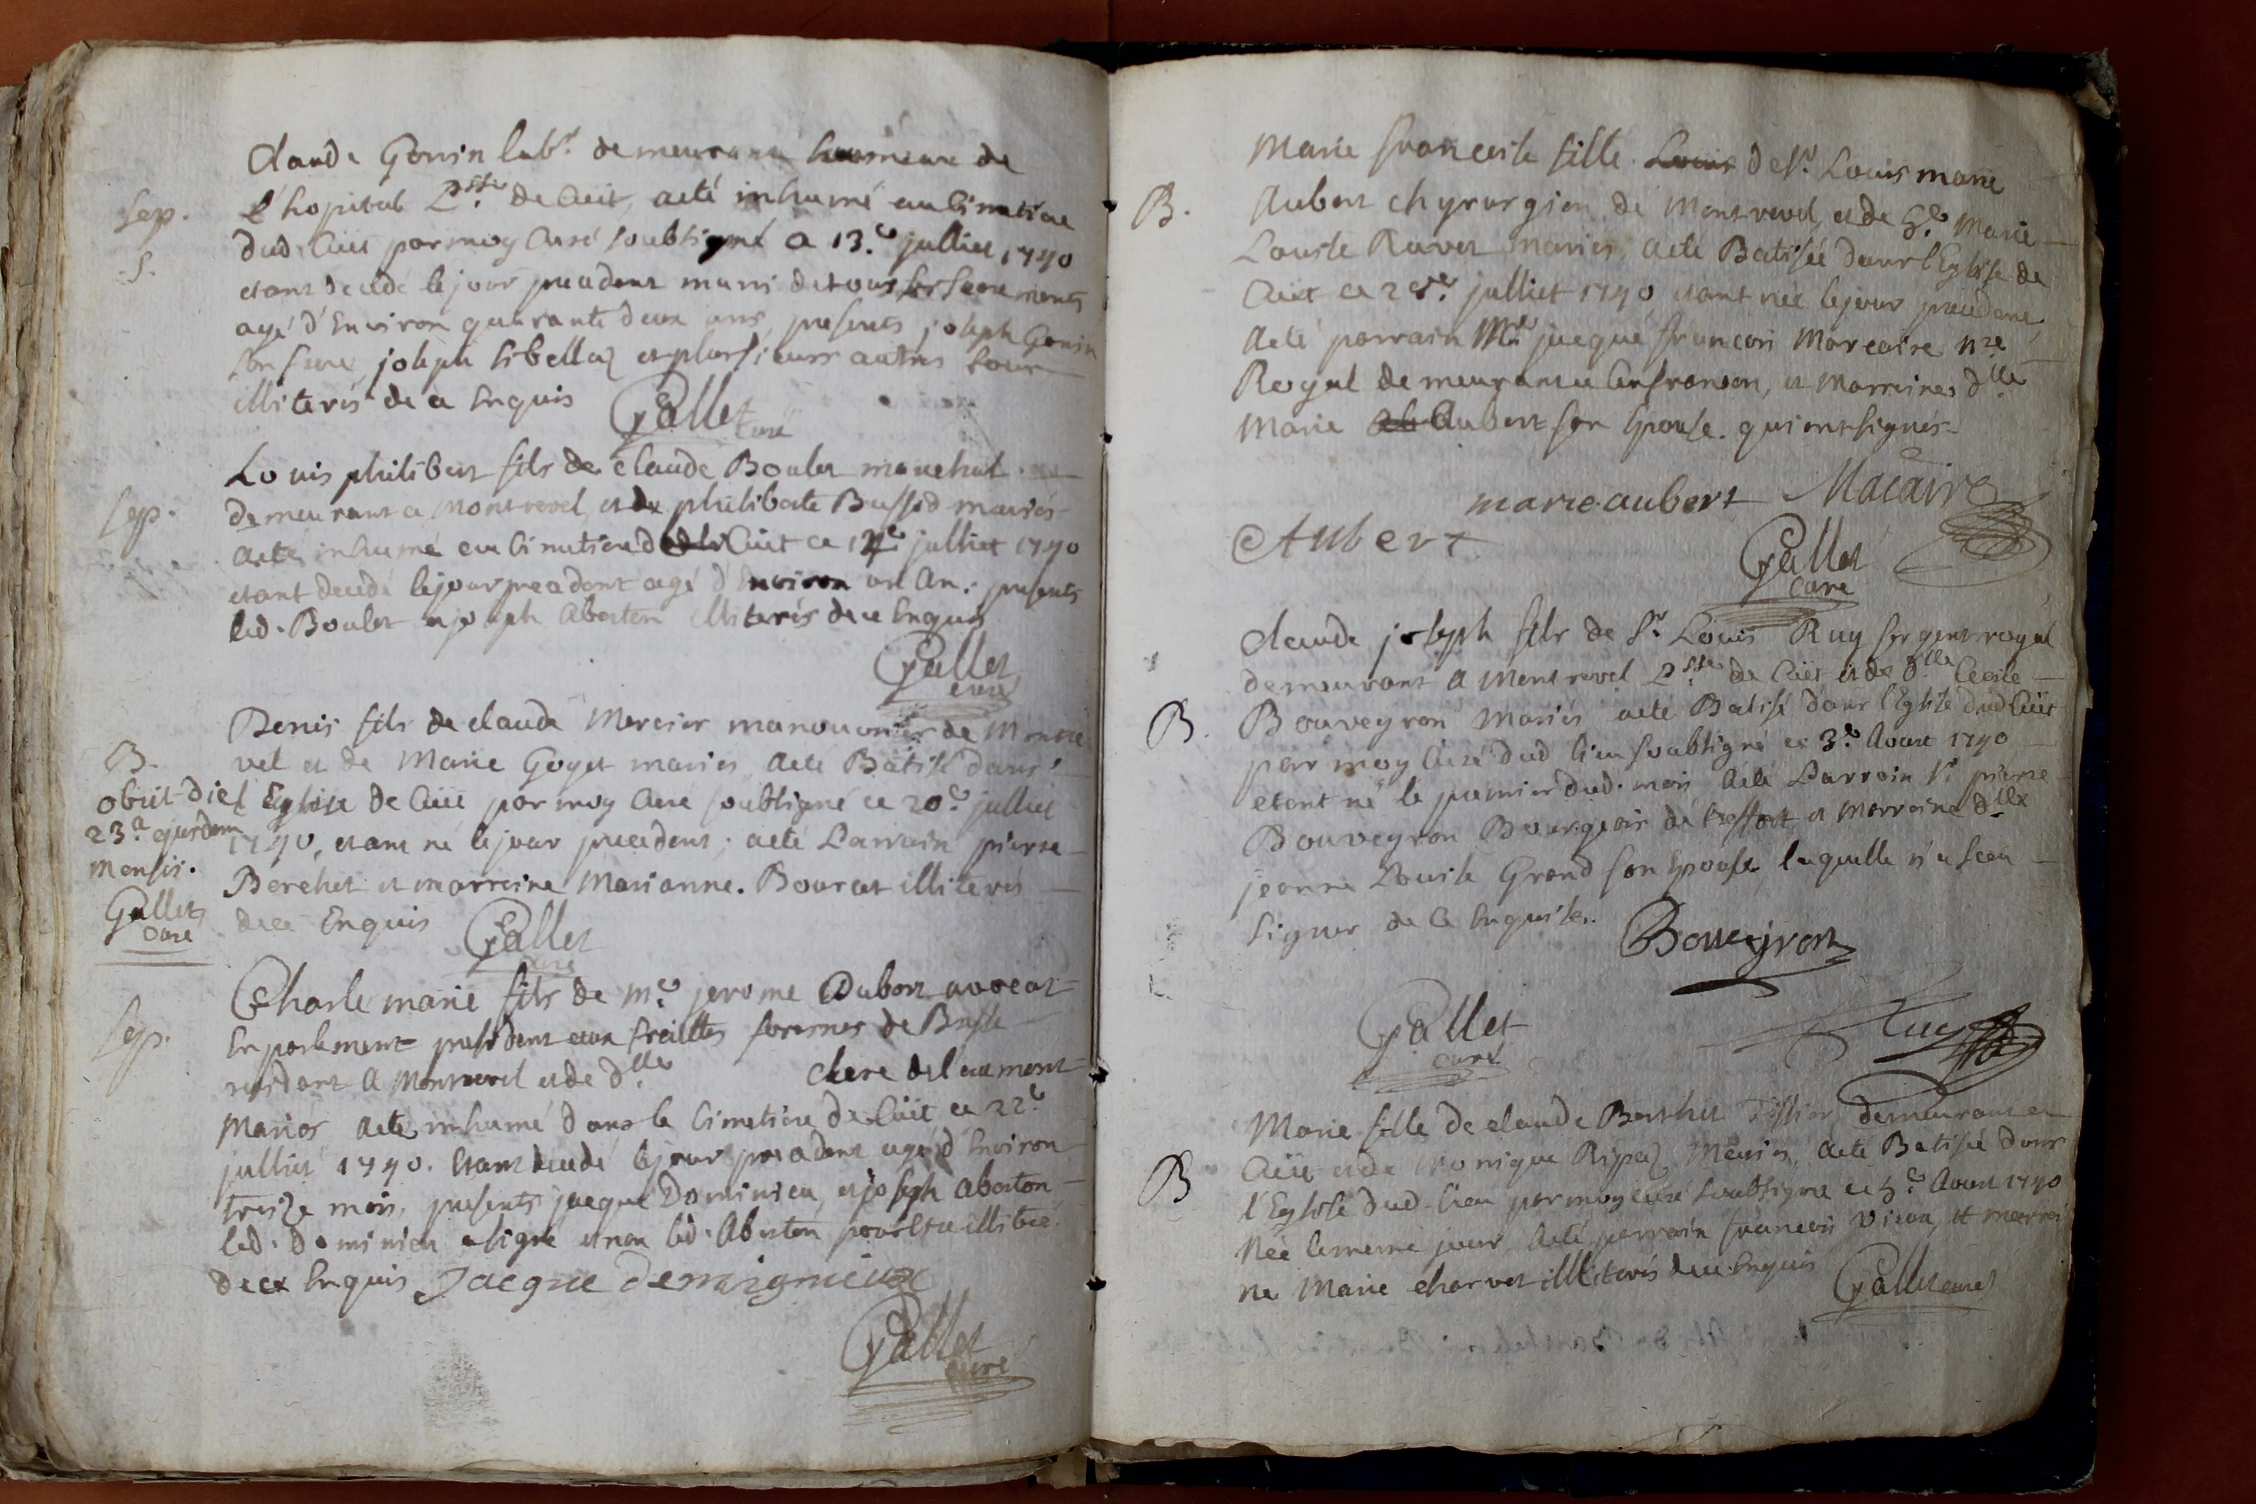 Claude Gonin labr. demeurant
sep. l'hopital psse. de Cuet, a eté inhumé au Cimetiere
S. dud. Cuet par moy Curé soubsigné ce 13.e julliet 1740
etant decedé le jour precedent muni de tous ses sacrements
agé d'Environ quarante deux ans, presents joseph Gonin
son frere joseph libellaz et plusieurs autres tous
illiterés de ce Enquis Gallet
curé
Louis philibert fils de claude Boulet marechal
sep. demeurant a Montrevel et de philiberte Buffod mariés
a eté inhumé au Cimetiere Cuet ce 14e julliet 1740
etant decedé le jour precedent agé d'Environ un An. presents
led. Boulet et joseph Aberton illiterés de ce Enquis
Gallet
curé
Denis fils de claude Mercier manouvrier de Montre
B. vel et de Marie Goyet mariés a eté Batisé dans
obiit die l'Eglise de Cuet par moy Curé soubsigné ce 20.e julliet
23.a ejusdem 1740, etant né le jour precedent; a eté Parrain pierre
mensis. Berchet et marreine Marianne Bourcet illiterés
Gallet de ce Enquis Gallet
Curé curé
Charle marie fils de me. jerome Dubost avocat
sep. En parlement president aux traittes foraines de
residant a Montrevel et de dlle. Clere de leaumont
Mariés a eté inhumé dans le Cimetiere de Cuet ce 22e
julliet 1740. Etant decedé le jour precedent agé d'Environ
treize mois, presents jacque Dominieu et joseph Aberton
led. Dominieu a signé et non led. Aberton pour etre illiteré
de ce Enquis Jacque demignieux
Gallet
curé
Marie francoise fille Louis de Sr. Louis marie
B. Aubert chyrurgien de Montrevel, et de Marie
Louise Ravet mariés, a eté Batisée dans l'Eglise de
Cuet ce julliet 1740 etant née le jour precedent
a eté parrain Mre jacque francois Marcaire nre
Royal demeurant a et marreine dlle
Marie Aubert son Epouse. qui ont signés
marie aubert Macaire
Aubert
Gallet
curé
claude joseph fils de Sr. Louis Ruy sergent royal
demeurant a Montrevel psse. de Cuet et de dlle Cecile
B. Bouveyron Mariés a eté Batisé dans l'Eglise dud Cuet
par moy Curé dud lieu soubsigné ce 3.e Aoust 1740
etant né le premier dud. mois a eté Parrain Sr. pierre
Bouveyron Bourgeois de treffort et Marreine dlle
jeanne Louise Grand son Epouse laquelle n'a sceu
signer de ce Enquise. Bouveyron
Gallet Ruy
curé
Marie fille de claude Berthet Tissier demeurant a
B Cuet et de Monique Ripaz Mariés, a eté Batisée dans
l'Eglise dud. lieu par moy curé soubsigné ce 5.e Aoust 1740
Née le meme jour a eté parrain francois Viron, et marrei
ne Marie charvet illiterés de ce Enquis Gallet curé